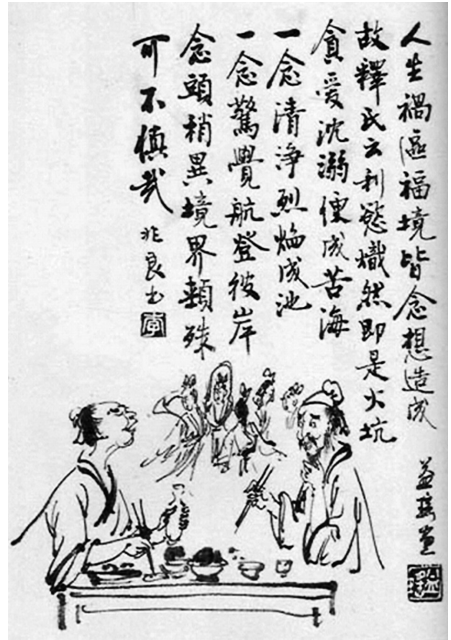 人生禍區福境皆念想造成
故釋氏云利慾熾然即是火坑
貪愛沈溺便成苦海
一念清淨烈焰成池
一念驚覺航登彼岸
念頭稍異境界頓殊
可不慎哉
兆良书
李